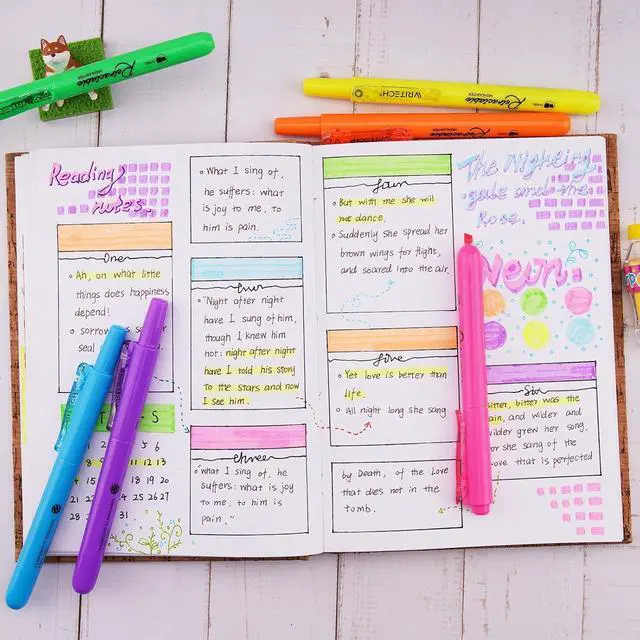 Retractable
HIGHLIGHTER
WRITECH
Retractable
HIGHLIGHTER
Retractable
Reading
notes.
One
Ah, on what little
things does happiness
depend!
sorrow
seal
S
5 6
8 9 10 11 12 13
15 19 20
24 25 26 27
28 31
What I sing of,
he suffers: what
is joy to me, to
him is pain.
"Night after night
have I sung of him,
though I knew him
not: night after night
have I told his story
to the stars and now
I see him.
three
"what I sing of, he
suffers: what is joy
to me, to him is
pain."
But with me she will
not dance.
Suddenly she spread her
brown wings for flight,
and soared into the air.
five
Yet love is better than
life.
All night long she sang
by Death, of the Love
that dies not in the
tomb.
The Nighting
gale and the
Rose.
Neon.
Six
bitter, bitter was the
pain, and wilder and
wilder grew her song,
for she sang of the
Love that is perfected